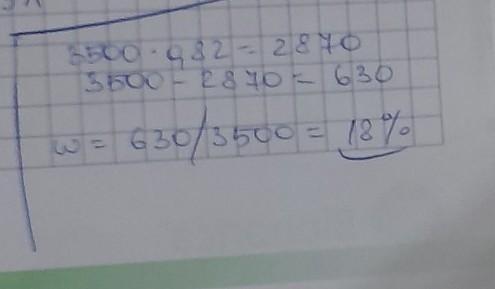 3500 · 0,82 = 2870
3500 - 2870 = 630
w = 630/3500 = 18%